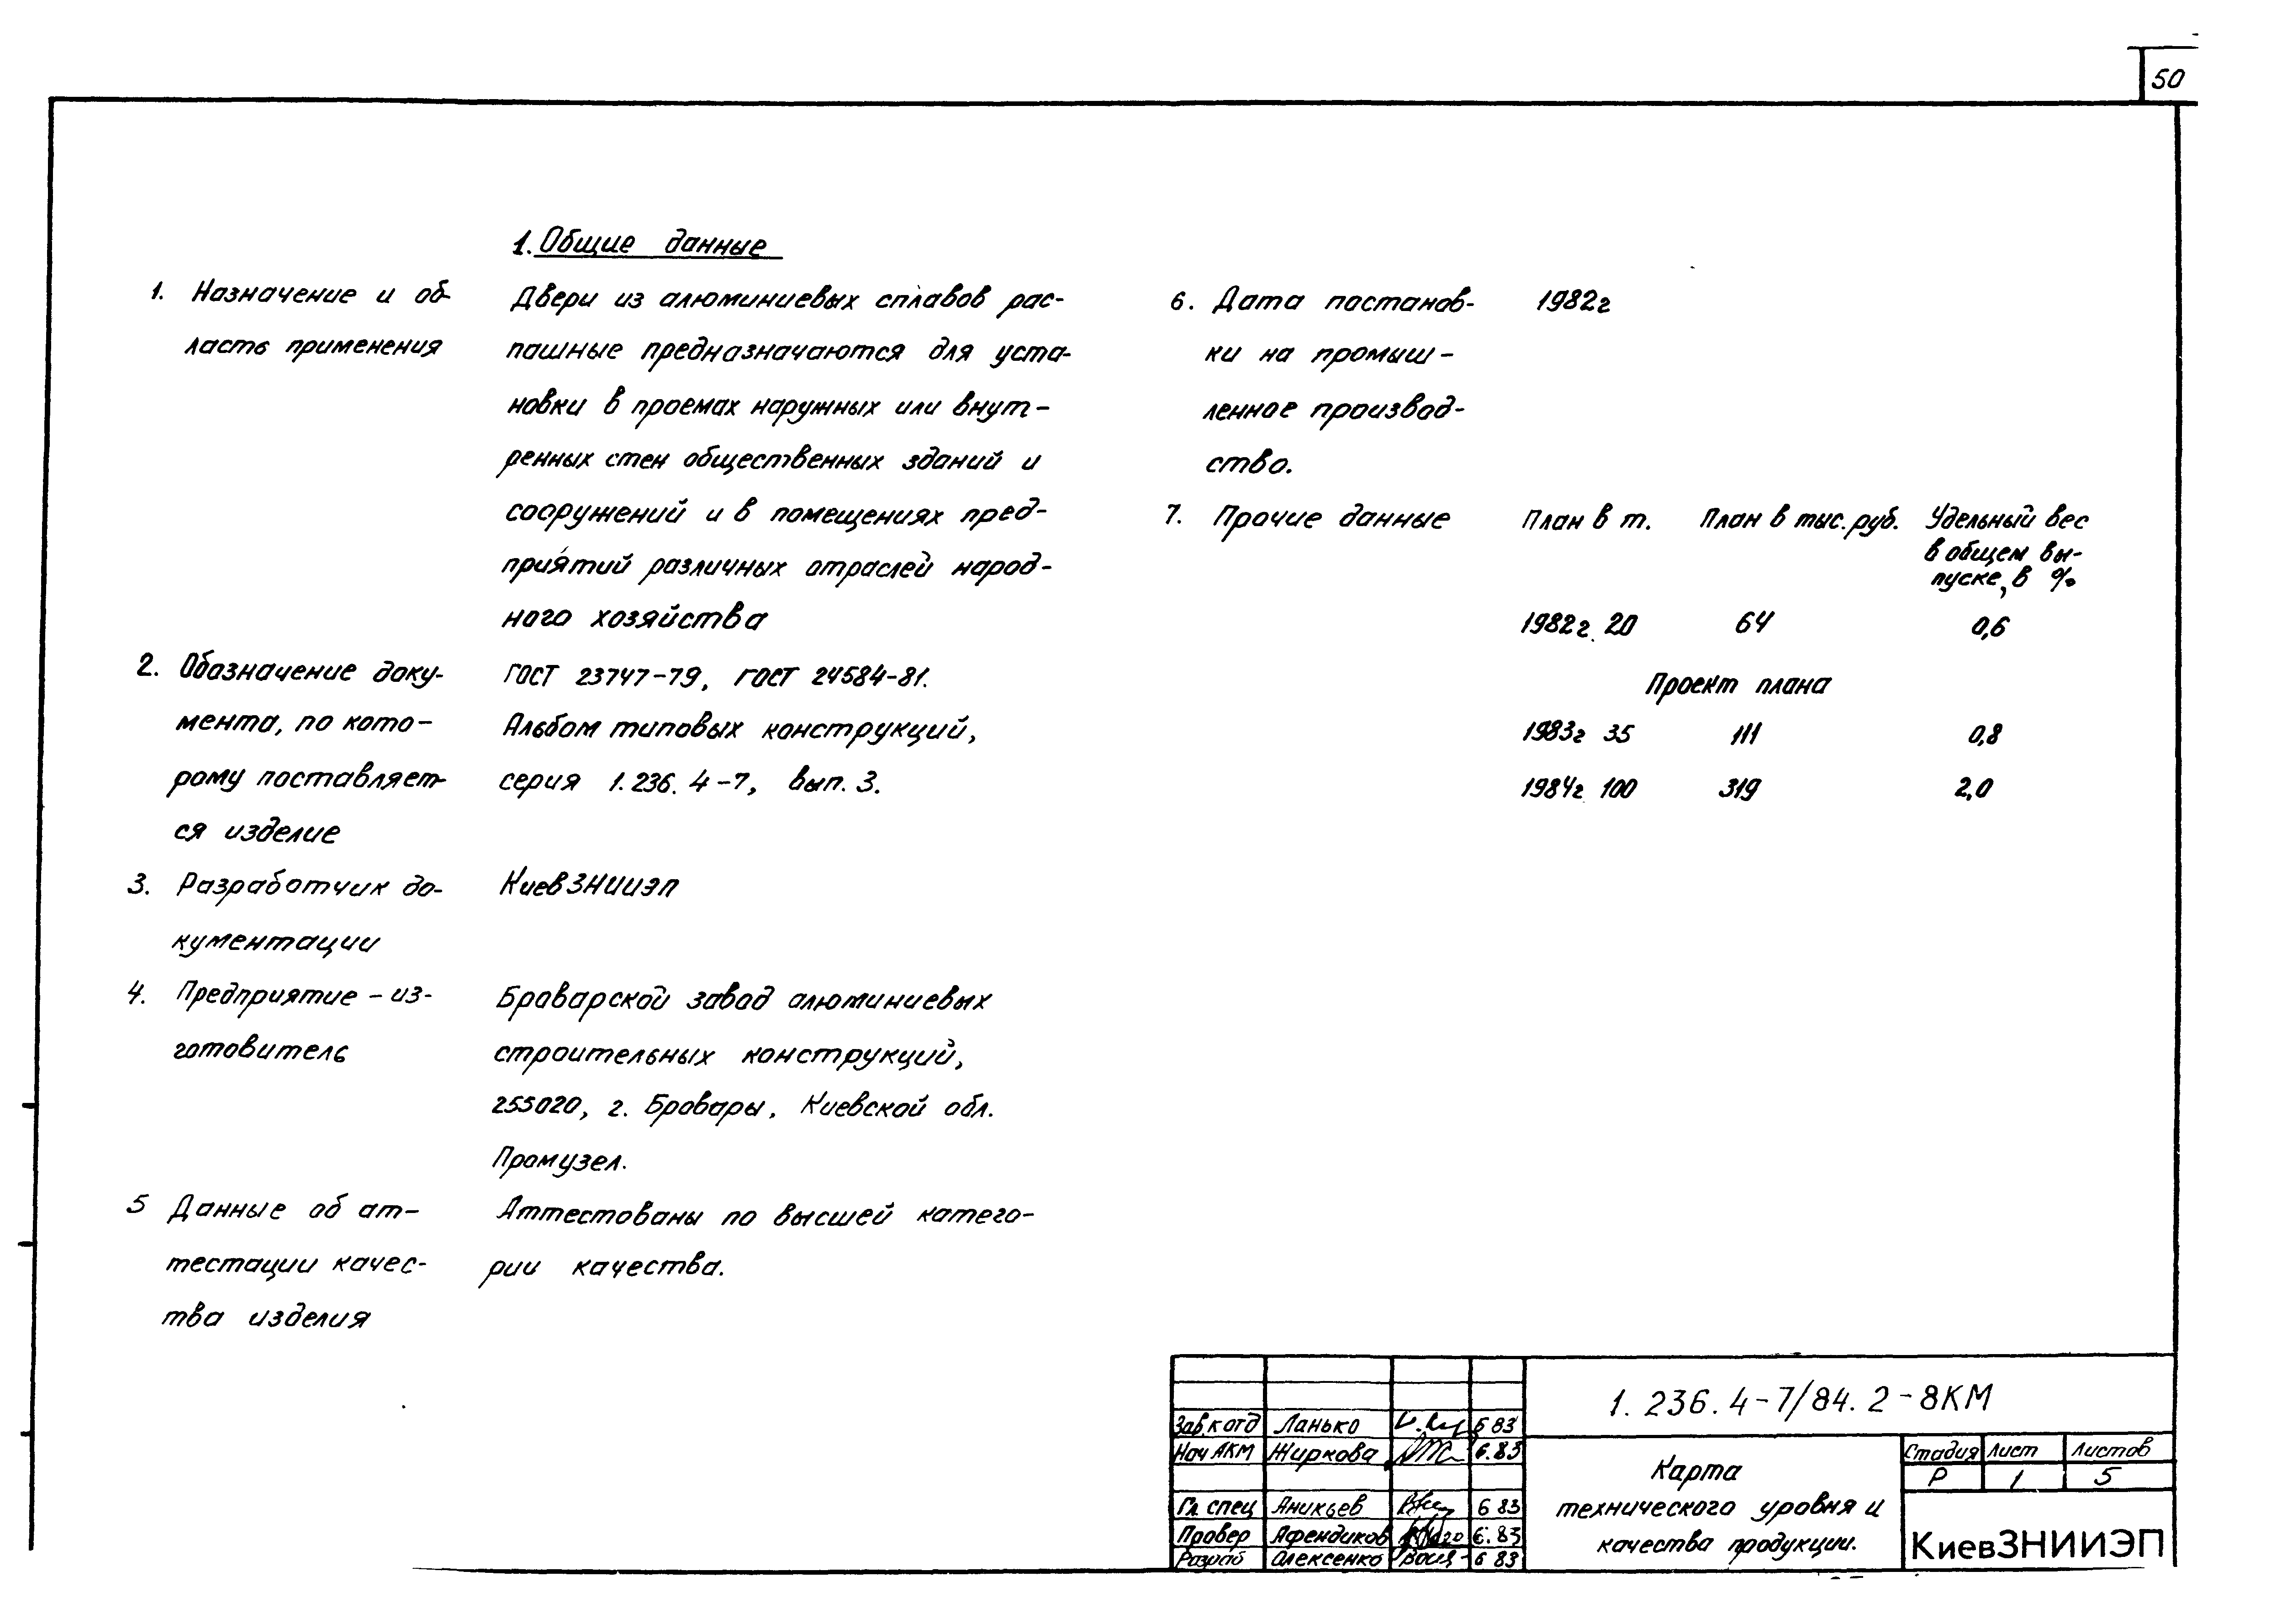 50
1. Общие данные
1. Назначение и об-
ласть применения
Двери из алюминиевых сплавов рас-
пашные предназначаются для уста-
новки в проемах наружных или внут-
ренных стен общественных зданий и
сооружений и в помещениях пред-
приятий различных отраслей народ-
ного хозяйства
2. Обозначение доку-
мента, по кото-
рому поставляет-
ся изделие
ГОСТ 23747-79, ГОСТ 24584-81.
Альбом типовых конструкций,
серия 1.236.4-7, вып. 3.
3. Разработчик до-
кументации
КиевЗНИИЭП
4. Предприятие-из-
готовитель
Броварской завод алюминиевых
строительных конструкций,
255020, г. Бровары, Киевской обл.
Промузел.
5 Данные об ат-
тестации качес-
тва изделия
Аттестованы по высшей катего-
рии качества.
6. Дата постанов-
ки на промыш-
ленное производ-
ство.
1982г
7. Прочие данные
План в т. План в тыс. руб. Удельный вес
в общем вы-
пуске, в %
1982г. 20 64 0,6
Проект плана
1983г 35 111 0,8
1984г. 100 319 2,0
Зав.к отд Ланько 6 83
Нач АКМ Жиркова 6.83
Гл. спец Аникьев 6 83
Провер Афендиков 6.83
Разраб Олексенко 6 83
1.236.4-7/84.2-8КМ
Карта
технического уровня и
качества продукции.
Стадия Лист Листов
Р 1 5
КиевЗНИИЭП